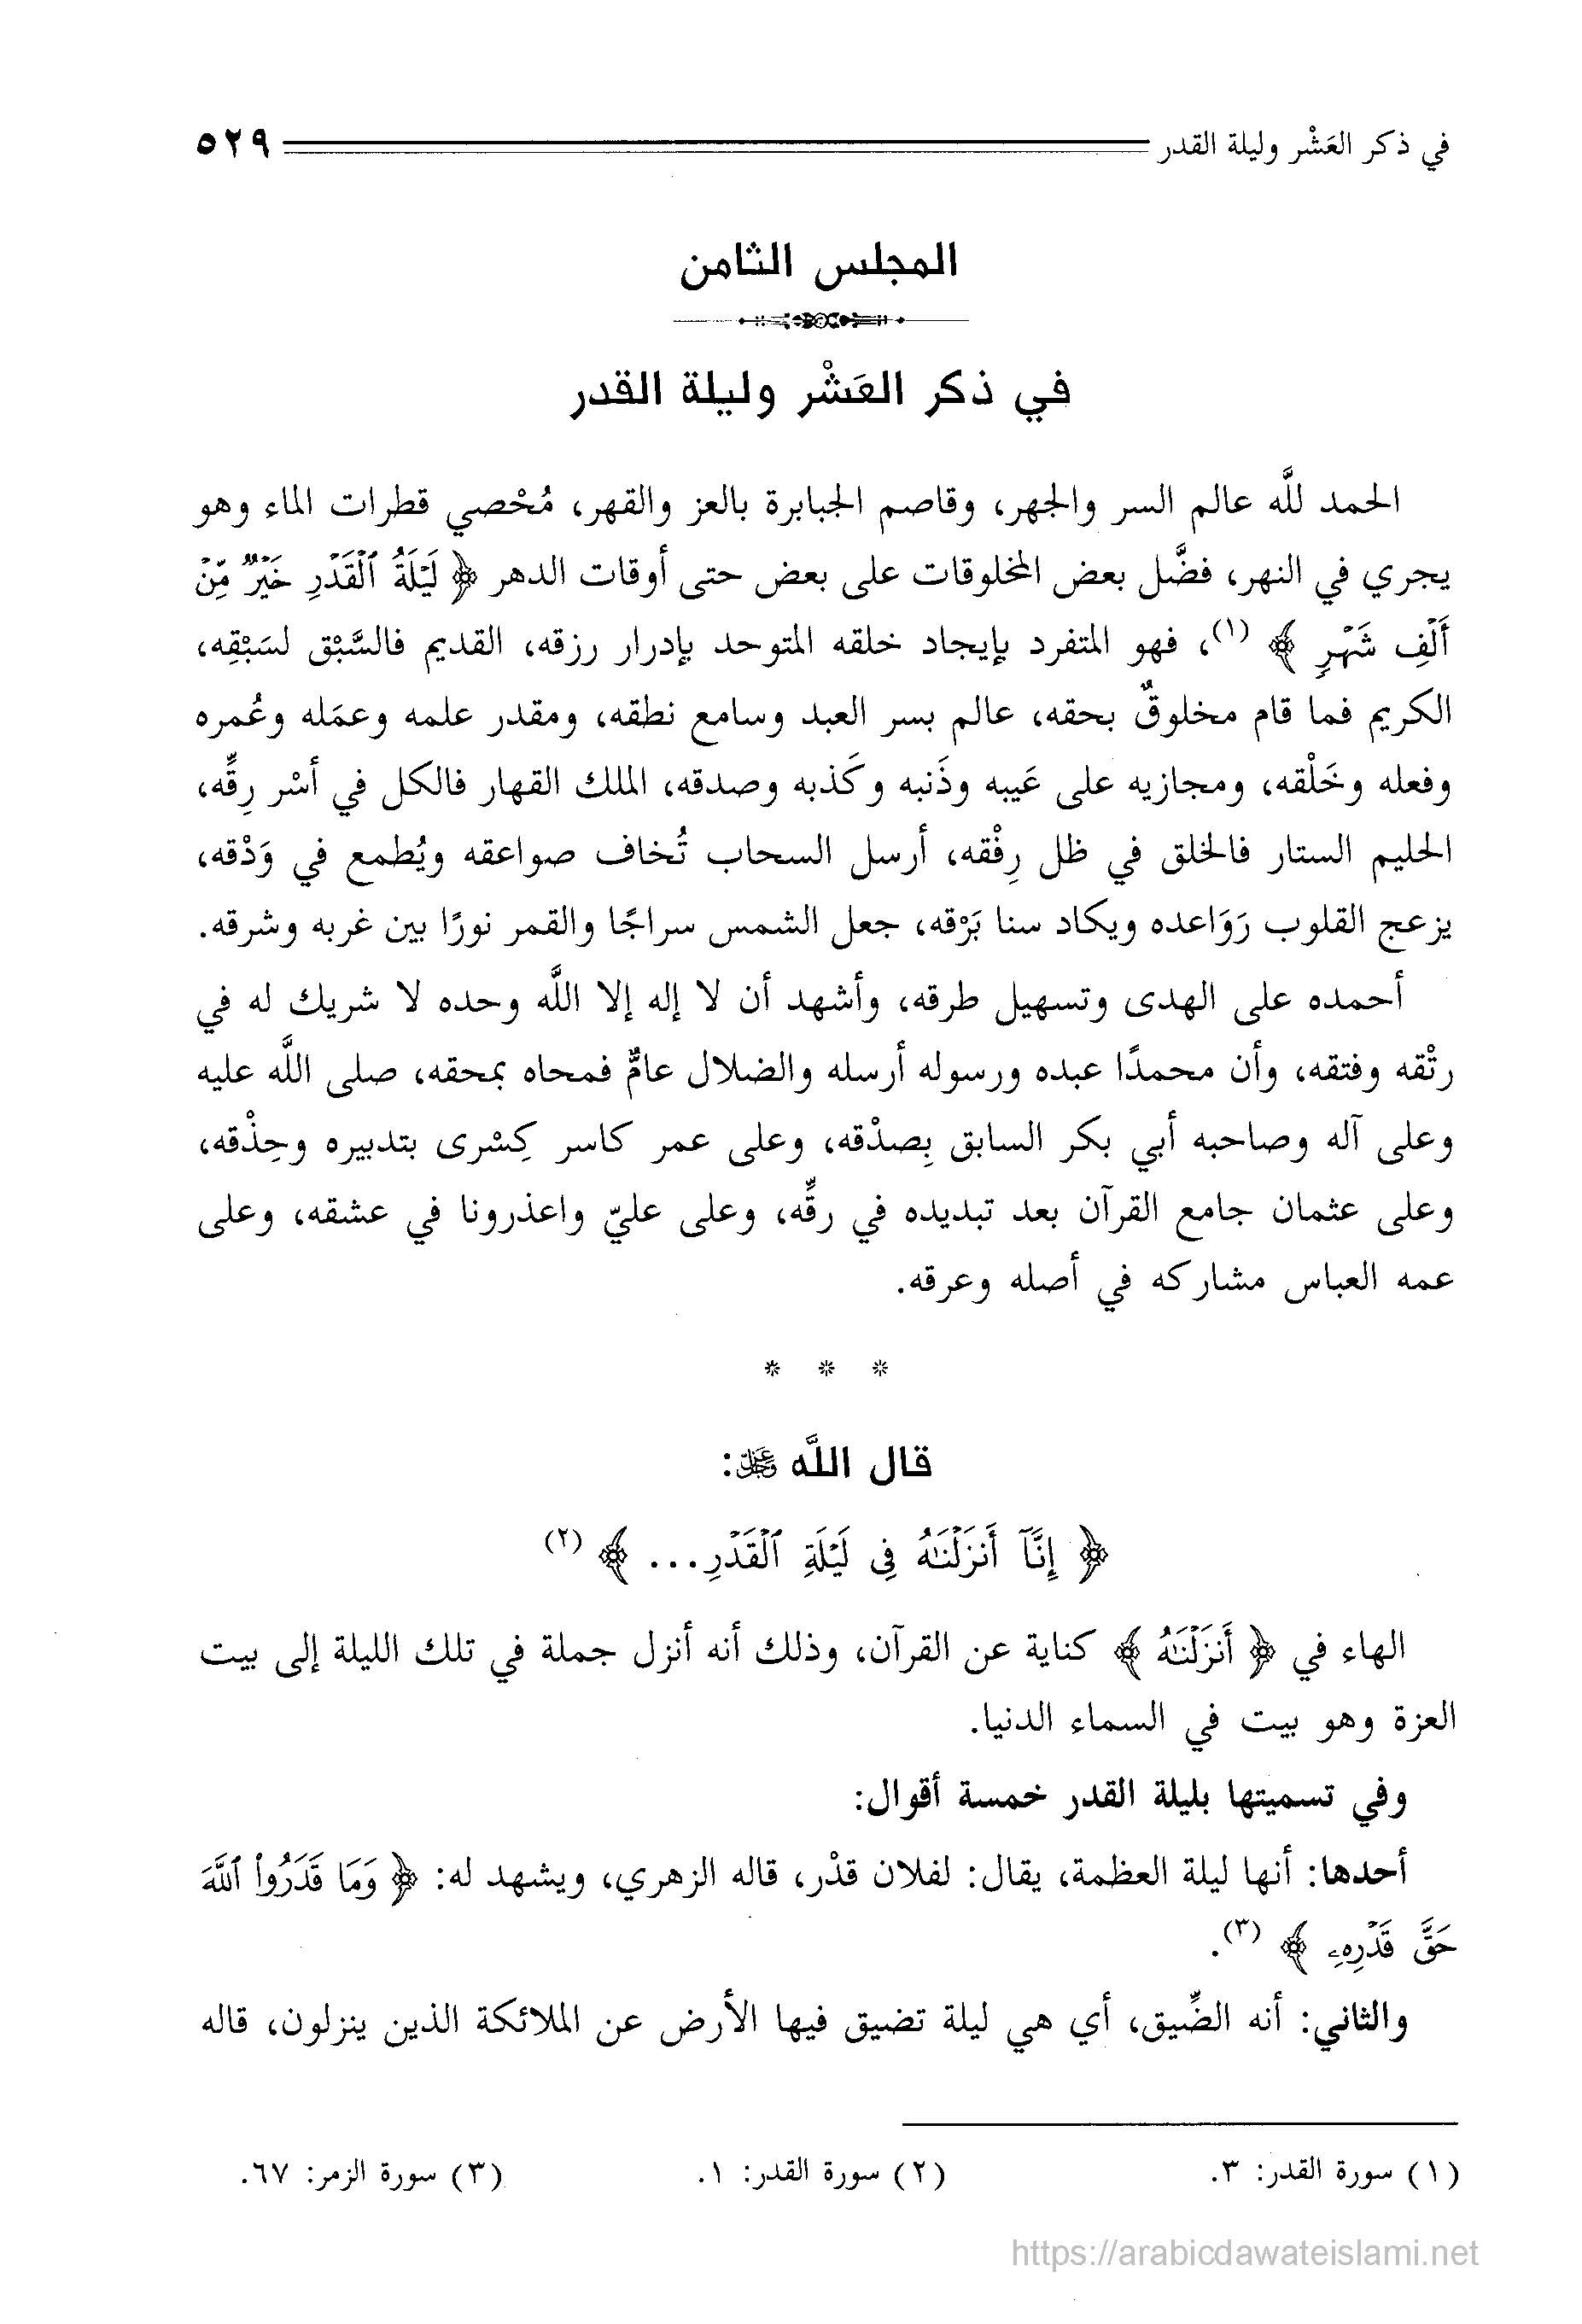 في ذكر العَشْر وليلة القدر ٥٢٩
المجلس الثامن
في ذكر العَشْر وليلة القدر
الحمد للَّه عالم السر والجهر، وقاصم الجبابرة بالعز والقهر، مُحْصي قطرات الماء وهو
يجري في النهر، فضَّل بعض المخلوقات على بعض حتى أوقات الدهر ﴿ لَيْلَةُ ٱلْقَدْرِ خَيْرٌ مِّنْ
أَلْفِ شَهْرٍ ﴾ (١)، فهو المتفرد بإيجاد خلقه المتوحد بإدرار رزقه، القديم فالسَّبْق لسَبْقِه،
الكريم فما قام مخلوقٌ بحقه، عالم بسر العبد وسامع نطقه، ومقدر علمه وعمَله وعُمره
وفعله وخَلْقه، ومجازيه على عَيبه وذَنبه وكَذبه وصدقه، الملك القهار فالكل في أسْر رِقِّه،
الحليم الستار فالخلق في ظل رِفْقه، أرسل السحاب تُخاف صواعقه ويُطمع في وَدْقه،
يزعج القلوب رَوَاعده ويكاد سنا بَرْقه، جعل الشمس سراجًا والقمر نورًا بين غربه وشرقه.
أحمده على الهدى وتسهيل طرقه، وأشهد أن لا إله إلا اللَّه وحده لا شريك له في
رتْقه وفتقه، وأن محمدًا عبده ورسوله أرسله والضلال عامٌّ فمحاه بمحقه، صلى اللَّه عليه
وعلى آله وصاحبه أبي بكر السابق بِصدْقه، وعلى عمر كاسر كِسْرى بتدبيره وحِذْقه،
وعلى عثمان جامع القرآن بعد تبديده في رقِّه، وعلى عليّ واعذرونا في عشقه، وعلى
عمه العباس مشاركه في أصله وعرقه.
* * *
قال اللَّه عَزَّ وَجَلَّ:
﴿ إِنَّآ أَنزَلْنَٰهُ فِى لَيْلَةِ ٱلْقَدْرِ... ﴾ (٢)
الهاء في ﴿ أَنزَلْنَٰهُ ﴾ كناية عن القرآن، وذلك أنه أنزل جملة في تلك الليلة إلى بيت
العزة وهو بيت في السماء الدنيا.
وفي تسميتها بليلة القدر خمسة أقوال:
أحدها: أنها ليلة العظمة، يقال: لفلان قدْر، قاله الزهري، ويشهد له: ﴿ وَمَا قَدَرُوا۟ ٱللَّهَ
حَقَّ قَدْرِهِۦ ﴾ (٣).
والثاني: أنه الضِّيق، أي هي ليلة تضيق فيها الأرض عن الملائكة الذين ينزلون، قاله
(١) سورة القدر: ٣. (٢) سورة القدر: ١. (٣) سورة الزمر: ٦٧.
https://arabicdawateislami.net